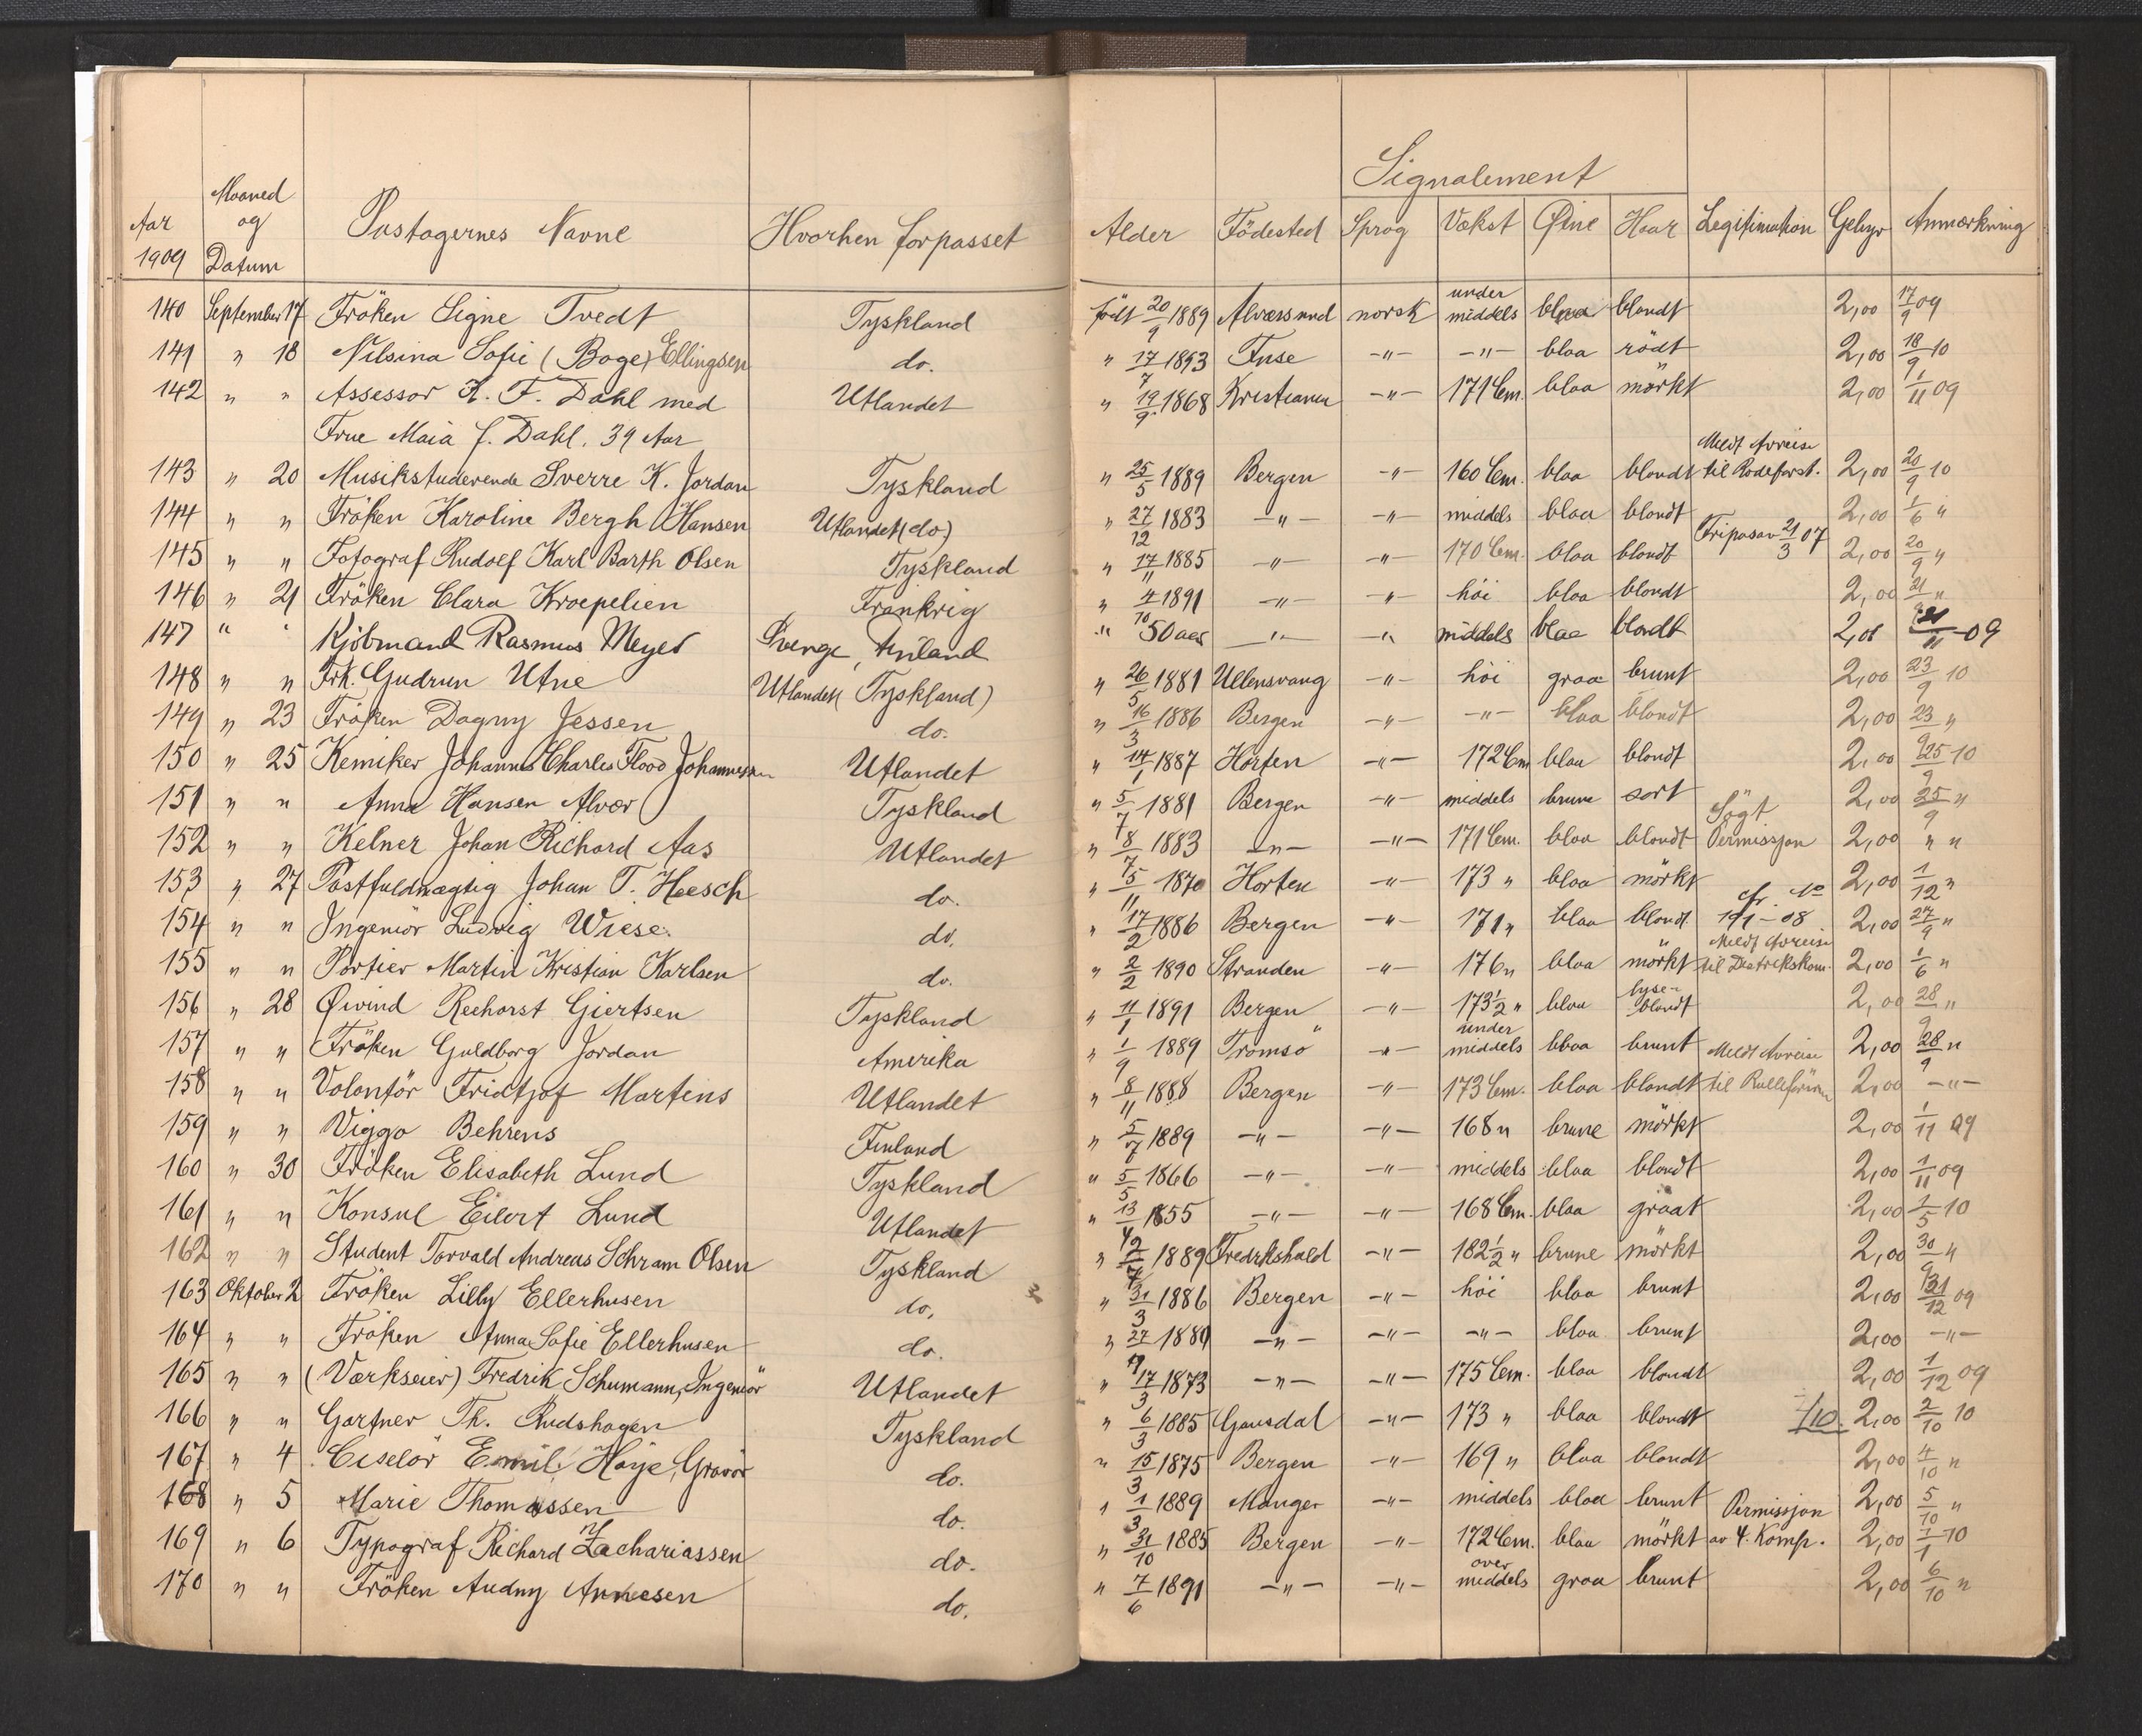 Signalement
Aar 1909 Maaned og Datum Pastagernes Navne Hvorhen forpasset Alder Födested Sprog Vækst Øine Haar Legitimation Gebyr Anmærkning
140 September 17 Fröken Signe Tvedt Tyskland født 20/9 1889 Alværsund norsk under middels blaa blondt 2,00 17/9 09
141 " 18 Nilsina Sofie (Boge) Ellingsen do. " 17/7 1893 Fuse -"- -"- blaa rödt 2,00 18/9 10
142 " " Assessor K. F. Dahl med Utlandet " 19/9 1868 Kristiania -"- 171 Cm. blaa mörkt 2,00 1/11 09
Frue Maia f. Dahl. 39 Aar
143 " 20 Musikstuderende Sverre K. Jordan Tyskland " 25/5 1889 Bergen -"- 160 Cm. blaa blondt Meldt Avreise til Rodeforst. 2,00 20/9 10
144 " " Fröken Karoline Bergh Hansen Utlandet (do) " 27/12 1883 -"- -"- middels blaa blondt 2,00 1/6 "
145 " " Fotograf Rudolf Karl Barth Olsen Tyskland " 17/11 1885 -"- -"- 170 Cm. blaa blondt Fripas av 21/3 07 2,00 20/9 "
146 " 21 Fröken Clara Kroepelien Frankrig " 4/10 1891 -"- -"- höi blaa blondt 2,00 21/9 "
147 " " Kjöbmand Rasmus Meyer Sverige, Finland " 50 aar -"- -"- middels blaa blondt 2,00 21/11 09
148 " " Frk. Gudrun Utne Utlandet (Tyskland) " 26/5 1881 Ullensvang -"- höi graa brunt 2,00 23/9 10
149 " 23 Fröken Dagny Jessen do. " 16/3 1886 Bergen -"- -"- blaa blondt 2,00 23/9 "
150 " 25 Kemiker Johannes Charles Flood Johannessen Utlandet " 14/1 1887 Horten -"- 172 Cm blaa blondt 2,00 25/9 10
151 " " Anna Hansen Alvær Tyskland " 5/7 1881 Bergen -"- middels brune sort 2,00 25/9 "
152 " " Kelner Johan Richard Aas Utlandet " 8/7 1883 -"- -"- 171 Cm. blaa blondt Sögt Permissjon 2,00 " "
153 " 27 Postfuldmægtig Johan T. Heesch do. " 5/11 1870 Horten -"- 173 " blaa mörkt 2,00 1/12 "
154 " " Ingeniör Ludvig Wiese. do. " 17/2 1886 Bergen -"- 171 " blaa blond. cfr. No 191-08 2,00 27/9 "
155 " " Portier Martin Kristian Karlsen do. " 2/2 1890 Stranden -"- 176 " blaa mörkt Meldt Avreise til Distriktskom. 2,00 1/6 "
156 " 28 Øivind Reehorst Giertsen Tyskland " 11/1 1891 Bergen -"- 173½ " blaa lyse-blondt 2,00 28/9 "
157 " " Fröken Guldborg Jordan Amerika " 1/9 1889 Tromsö -"- under middels blaa brunt 2,00 28/9 "
158 " " Volontör Fridtjof Martens Utlandet " 8/11 1888 Bergen -"- 173 Cm. blaa blondt Meldt Avreise til Rulleförer 2,00 -"-
159 " " Viggo Behrens Finland " 5/7 1889 -"- -"- 168 " brune mörkt 2,00 1/11 09
160 " 30 Fröken Elisabeth Lund Tyskland " 5/5 1866 -"- -"- middels blaa blondt 2,00 1/11 09
161 " " Konsul Eilert Lund Utlandet " 13/4 1855 -"- -"- 168 Cm. blaa graat 2,00 1/5 10
162 " " Student Torvald Andreas Schram Olsen Tyskland " 12/7 1889 Fredrikshald -"- 182½ " brune mörkt 2,00 30/9 "
163 Oktober 2 Fröken Lilly Ellerhusen do. " 31/3 1886 Bergen -"- höi blaa brunt 2,00 31/12 09
164 " " Fröken Anna Sofie Ellerhusen do. " 27/9 1880 -"- -"- -"- blaa brunt 2,00 -"-
165 " " (Værkseier) Fredrik Schumann, Ingeniör Utlandet " 17/3 1873 -"- -"- 175 Cm. blaa blondt 2,00 1/12 09
166 " " Gartner Th. Rudshagen Tyskland " 6/3 1885 Gausdal -"- 173 " blaa blondt 1/10. 2,00 2/10 10
167 " 4 Ciselör Emil Høye, Gravör do. " 15/3 1875 Bergen -"- 169 " blaa blondt 2,00 4/10 "
168 " 5 Marie Thomassen do. " 1/3 1889 Manger -"- middels blaa brunt 2,00 5/10 "
169 " 6 Typograf Richard Zachariassen do. " 31/10 1885 Bergen -"- 172 Cm. blaa mörkt Permissjon av 4. Komp. 2,00 1/1 10
170 " " Fröken Audny Arnesen do. " 7/6 1891 -"- -"- over middels graa brunt 2,00 6/10 "